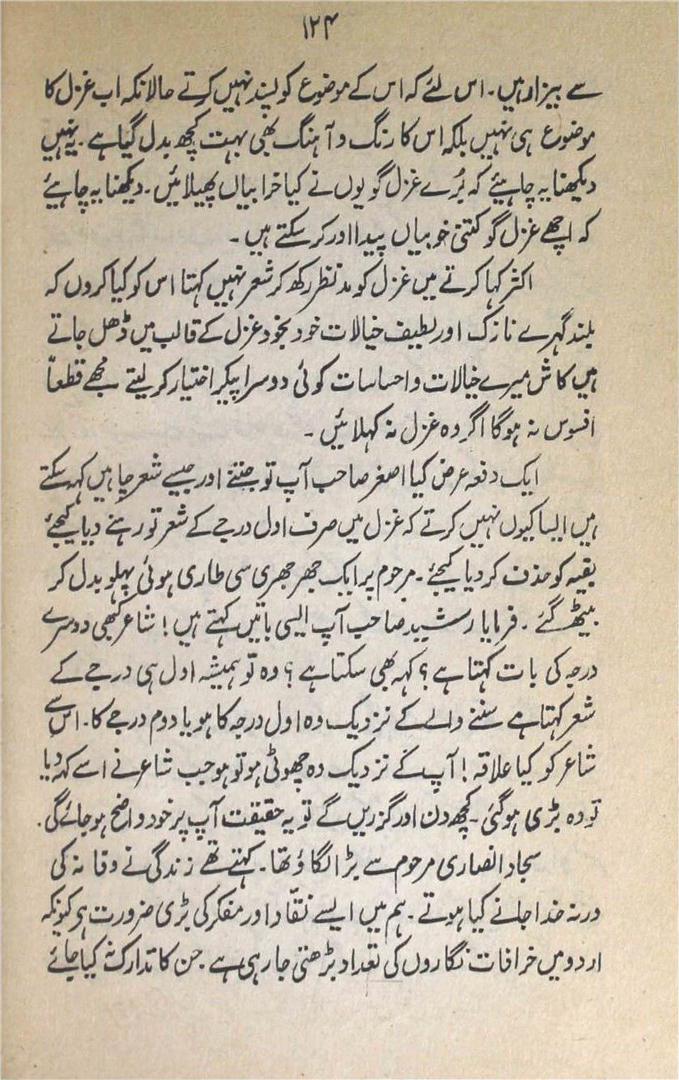 ۱۲۴
سے بیزار ہیں۔ اس لئے کہ اس کے موضوع کو پسند نہیں کرتے حالانکہ اب غزل کا
موضوع ہی نہیں بلکہ اس کا رنگ و آہنگ بھی بہت کچھ بدل گیا ہے۔ یہ نہیں
دیکھنا یہ چاہیئے کہ بُرے غزل گویوں نے کیا خرابیاں پھیلائیں۔ دیکھنا یہ چاہیئے
کہ اچھے غزل گو کتنی خوبیاں پیدا اور کر سکتے ہیں۔
اکثر کہا کرتے میں غزل کو مدنظر رکھ کر شعر نہیں کہتا اس کو کیا کروں کہ
بلند گہرے نازک اور لطیف خیالات خود بخود غزل کے قالب میں ڈھل جاتے
ہیں کاش میرے خیالات و احساسات کوئی دوسرا پیکر اختیار کر لیتے مجھے قطعاً
افسوس نہ ہوگا اگر وہ غزل نہ کہلائیں۔
ایک دفعہ عرض کیا اصغر صاحب آپ تو جتنے اور جیسے شعر چاہیں کہہ سکتے
ہیں ایسا کیوں نہیں کرتے کہ غزل میں صرف اول درجے کے شعر تو رہنے دیا کیجئے
بقیہ کو حذف کر دیا کیجئے۔ مرحوم پر ایک جھرجھری سی طاری ہوئی پہلو بدل کر
بیٹھ گئے۔ فرمایا رشید صاحب آپ ایسی باتیں کہتے ہیں! شاعر کبھی دوسرے
درجہ کی بات کہتا ہے؟ کہہ بھی سکتا ہے؟ وہ تو ہمیشہ اول ہی درجے کے
شعر کہتا ہے سننے والے کے نزدیک وہ اول درجہ کا ہو یا دوم درجے کا۔ اس سے
شاعر کو کیا علاقہ! آپ کے نزدیک وہ چھوٹی ہو تو ہو جب شاعر نے اسے کہہ دیا
تو وہ بڑی ہو گئی۔ کچھ دن اور گزریں گے تو یہ حقیقت آپ پر خود واضح ہو جائے گی۔
سجاد انصاری مرحوم سے بڑا لگاؤ تھا۔ کہتے تھے زندگی نے وفا نہ کی
ورنہ خدا جانے کیا ہوتے۔ ہم میں ایسے نقّاد اور مفکر کی بڑی ضرورت ہو کیونکہ
اردو میں خرافات نگاروں کی تعداد بڑھتی جا رہی ہے جن کا تدارک نہ کیا جائے